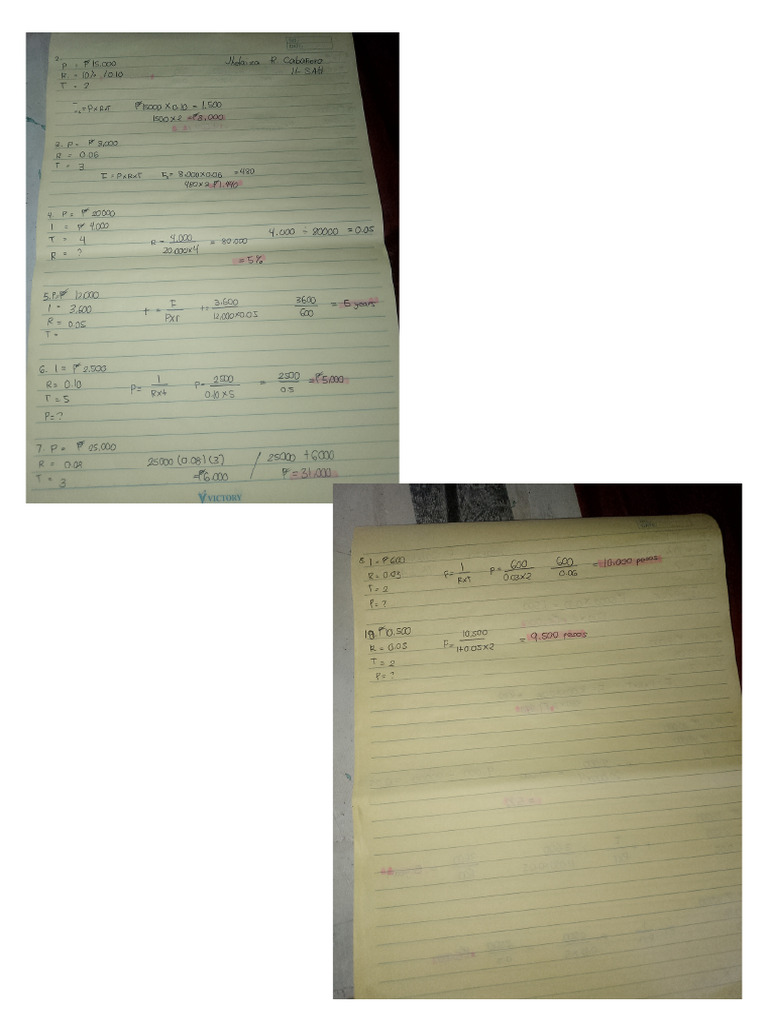 2.
P = ₱15.000
R = 10% /0.10
T = 2
R Cabañero
11- SAH
= PxRxT ₱15000 x 0.10 = 1.500
1500 x 2 = ₱3,000
3. P = ₱ 8,000
R = 0.06
T = 3
I = PxRxT = 8.000 x 0.06 = 480
480 x 2 ₱1.440
4. P = ₱ 20000
I = ₱ 4,000
T = 4
R = ?
R = 4.000 / 20.000 x 4 = 80.000 4.000 ÷ 80000 = 0.05
= 5%
5. P = ₱ 12,000
I = 3,600
R = 0.05
T =
t = I / Pxr t = 3.600 / 12.000 x 0.05 3600 / 600 = 6 years
6. I = ₱ 2.500
R = 0.10
T = 5
P = ?
P = I / Rxt P = 2500 / 0.10 x 5 = 2500 / 0.5 = ₱5.000
7. P = ₱ 25,000
R = 0.08
T = 3
25000 (0.08) (3) / 25000 + 6000
= ₱6.000 ₱ = 31.000
VICTORY
8 I = ₱600
R = 0.03
T = 2
P = ?
P = I / RxT P = 600 / 0.03 x 2 600 / 0.06 = 10.000 pesos
10 ₱0.500
R = 0.05
T = 2
P = ?
P = 10.500 / 1+0.05 x 2 = 9.500 pesos